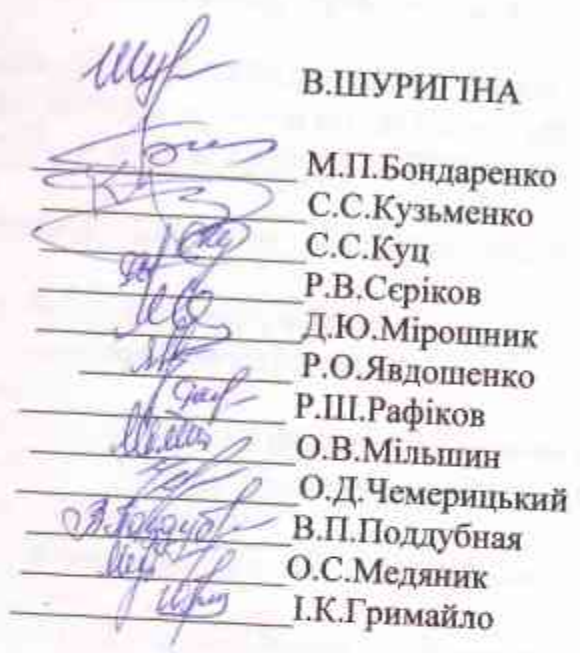 В.ШУРИГІНА
М.П.Бондаренко
С.С.Кузьменко
С.С.Куц
Р.В.Сєріков
Д.Ю.Мірошник
Р.О.Явдошенко
Р.Ш.Рафіков
О.В.Мільшин
О.Д.Чемерицький
В.П.Поддубная
О.С.Медяник
І.К.Гримайло